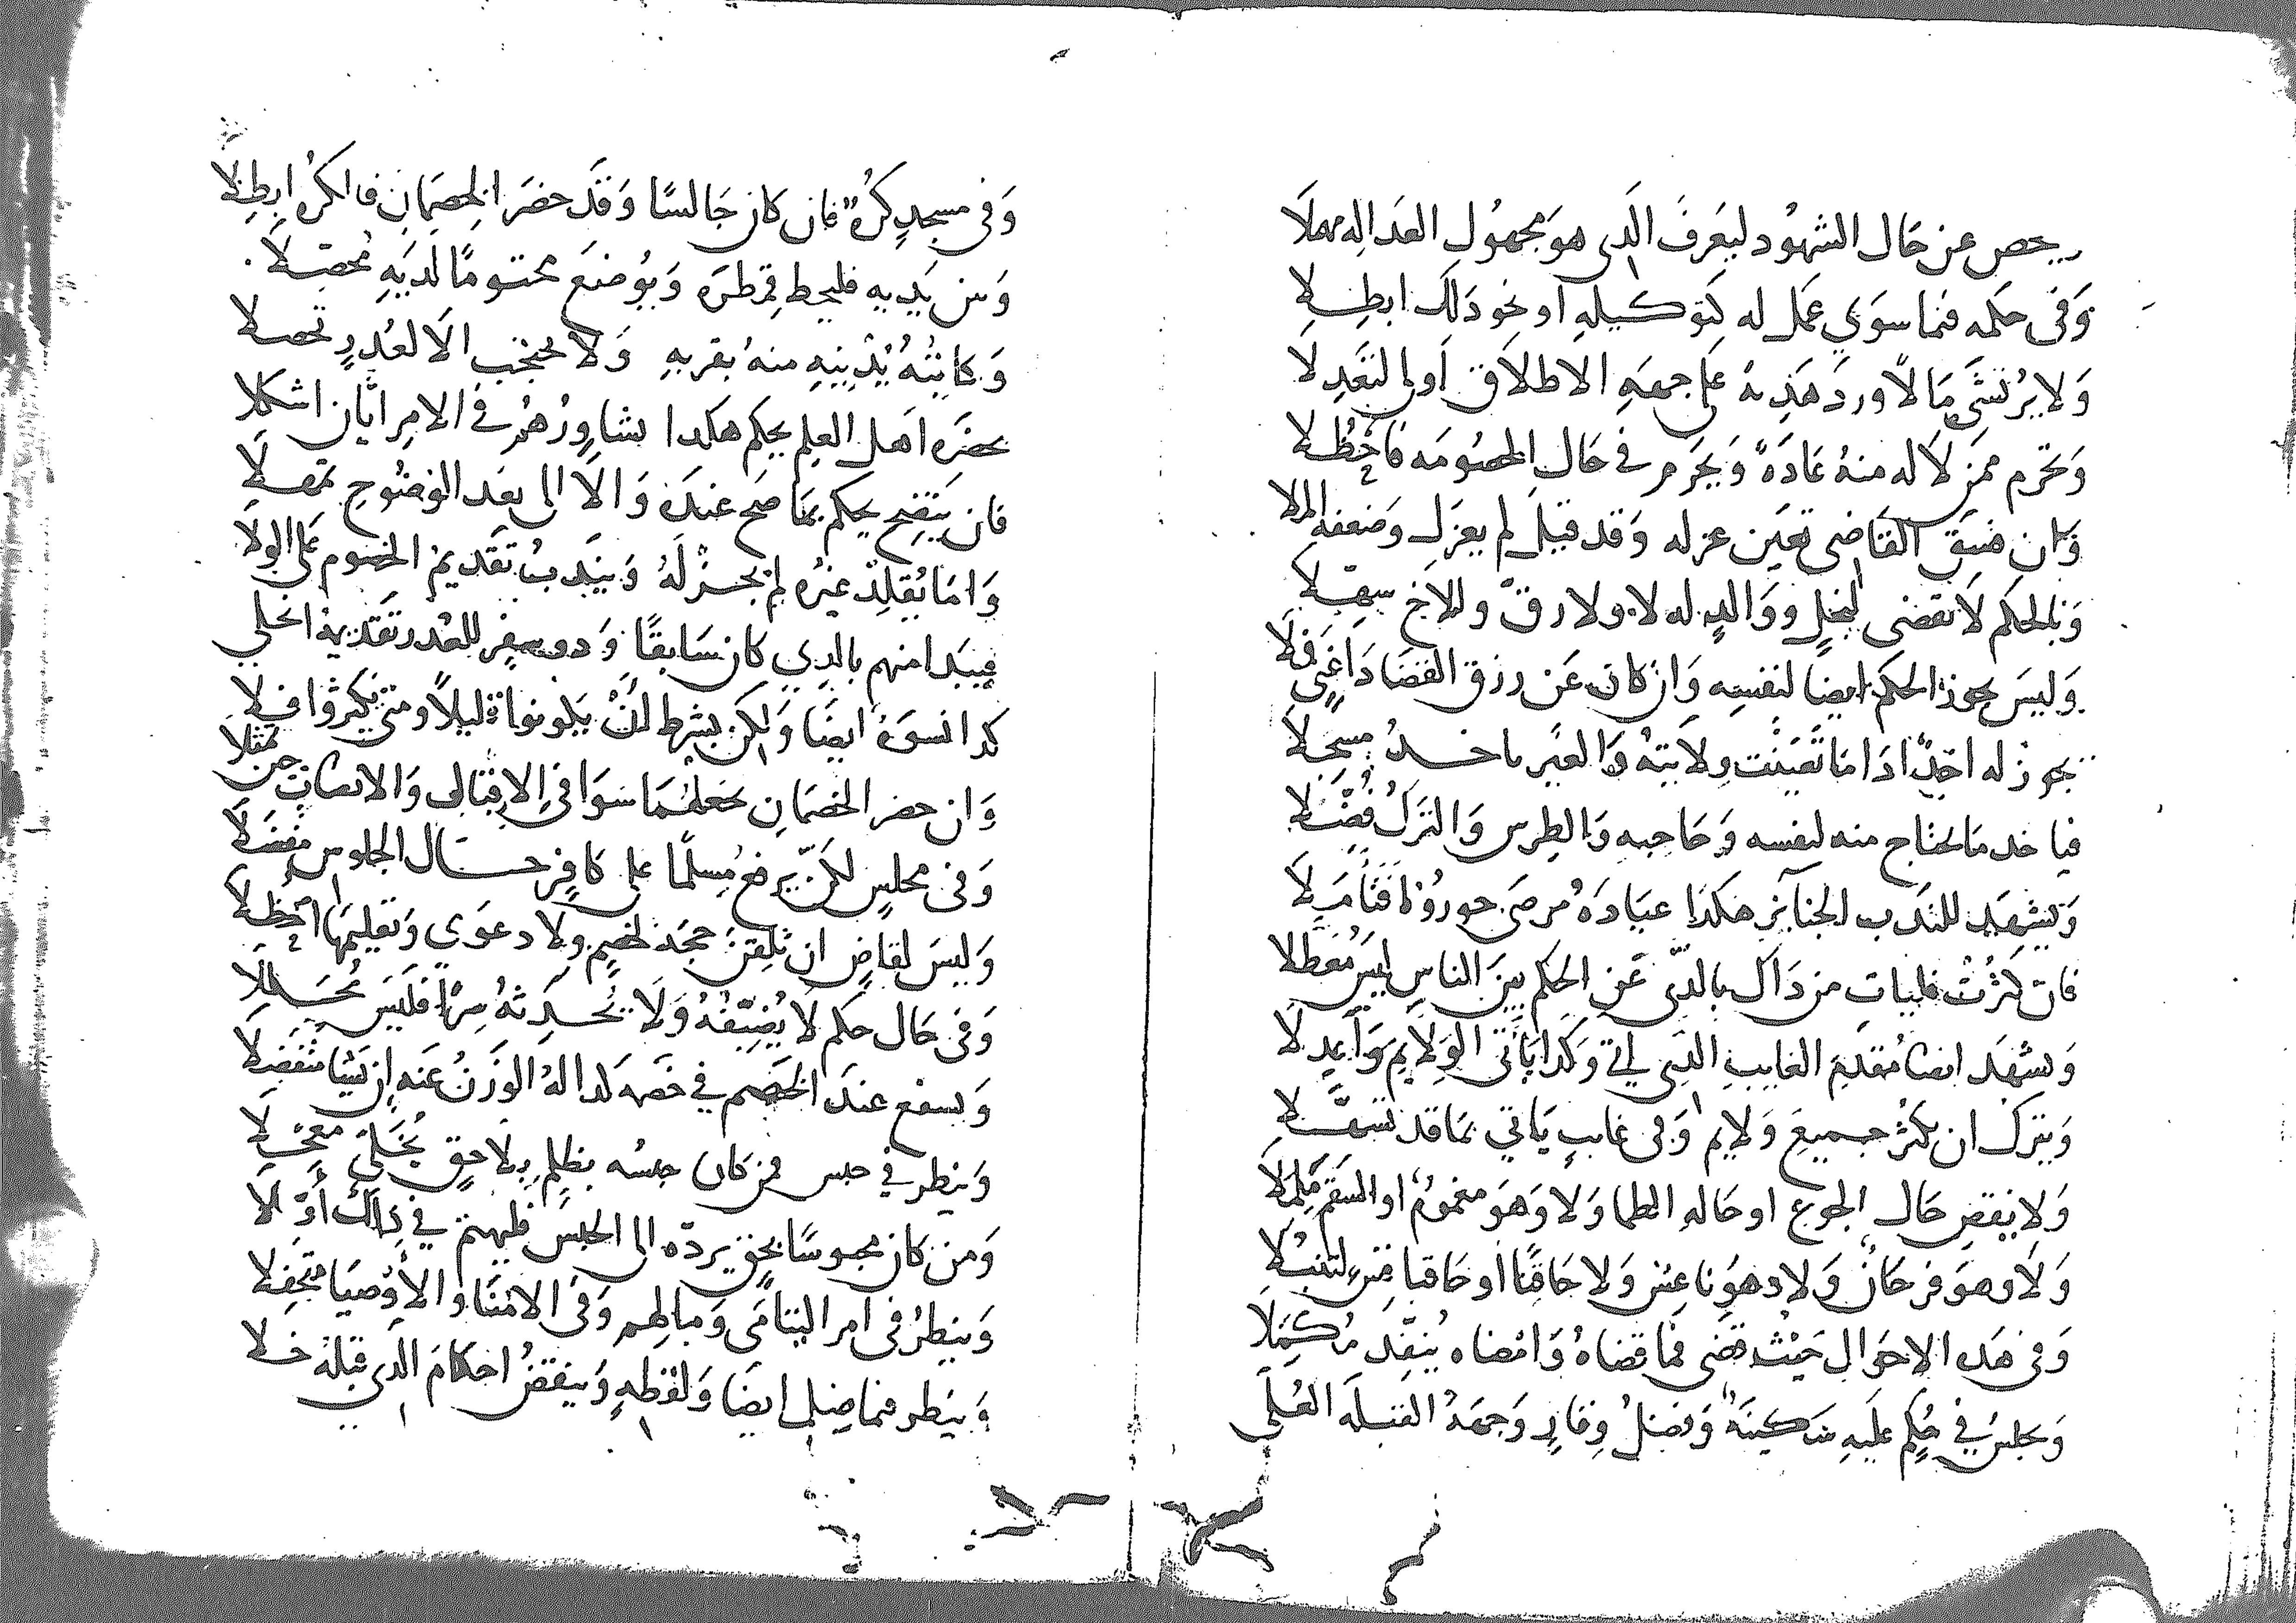 يحص عن حال الشهود ليعرف الدى هو مجهول العداله مهملا
وفى حكمه فيما سوى عمل له كتوكيله او نحو ذلك ابطلا
ولا يرتشى مالا ورد هديه على جهه الاطلاق اولى لتعدلا
وتحرم ممن لا له منه عادة ويحرم في حال الخصومه فاحظلا
وان فسق القاضى تعين عزله وقد قيل لم يعزل وضعفه الملا
وبالحكم لا تقضى لنجل ووالد له لا ولا رق وللاخ سهلا
وليس يجوز الحكم ايضا لنفسه وان كان عن رزق القضا دا غنى فلا
يجوز له اخذ ادا ما تعينت ولايته والغير ياخده مسجلا
فياخد ما يحتاج منه لنفسه وحاجبه والطرس والترك فضلا
ويشهد للندب الجنائز هكذا عيادة مرضى
فان كثرت فليات من داك بالدى عن الحكم بين الناس ليس معطلا
ويشهد ايضا مقدم الغايب الدى وكدا ياتى الولايم
ويترك ان تكثر جميع ولايم وفى غايب ياتي بما قد تسهلا
ولا يقض حال الجوع او حاله الظما ولا وهو مغموم او السقم
ولا وهو فرحان ولا وهو ناعس ولا حاقنا او حاقبا
وفى هده الاحوال حيث قضى فما قضاه وامضاه ينفد مكملا
ويجلس في حكم عليه سكينة وفضل وقار وجهة القبله العلى
وفى مسجد كره فان كان جالسا وقد حضر الخصمان فالكره ابطلا
وبين يديه فليحط قمطره ويوضع مختوما لديه محصلا
وكاتبه يدنيه منه بقربه ولا يحتجب الا لعدر تحصلا
بحضره اهل العلم يحكم هكدا يشاورهم في الامر ايان اشكلا
فان يتضح يحكم بما صح عنده والا الى بعد الوضوح تمهلا
واما تقليد غيره لم يجز له ويندب تقديم الخصوم على الولا
فيبدا منهم بالدي كان سابقا ودو سفر للعدر تقديمه انجلى
كدا نسوة ايضا ولكن بشرط ان يكونوا قليلا ومتى يكثروا فلا
وان حضر الخصمان يجعلهما سوا في الاقبال والانصات حين تمثلا
وفى مجلس لكن يرفع مسلما على كافر حال الجلوس مفضلا
وليس لقاض ان يلقن حجة لخصم ولا دعوى وتعليمها احظلا
وفى حال حكم لا يضيفه ولا يحدثه سرا فليس محللا
ويشفع عند الخصم في خصمه كدا له الوزن عنه ان يشا متفضلا
وينظر في حبس فمن كان حبسه بظلم بلا حق يخلى معجلا
ومن كان محبوسا بحق يرده الى الحبس فليهتم في ذلك اولا
وينظر فى امر اليتامى ومالهم وفى الامنا والاوصيا
وينظر فيما ضل ايضا ولقطه وينقض احكام الدي قبله خلا